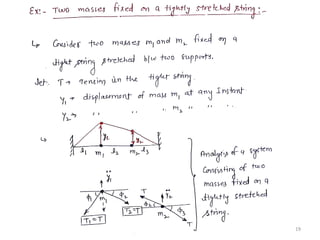 Ex:- Two masses fixed on a tightly stretched string:-
↳ Consider two masses m₁ and m₂ fixed on a
tight string stretched b/w two supports.
Let. T → Tension in the tight string.
y₁ → displacement of mass m₁ at any Instant
y₂ → " " " m₂ " " "
↳
y₂
l₁ m₁ l₂ m₂ l₃
Analysis of a system
Consisting of two
masses fixed on a
tightly stretched
string.
ÿ₁
ϕ₁ m₁ ϕ₂
T₁=T
T₂=T
T ÿ₂
ϕ₂
m₂ ϕ₃
T
19